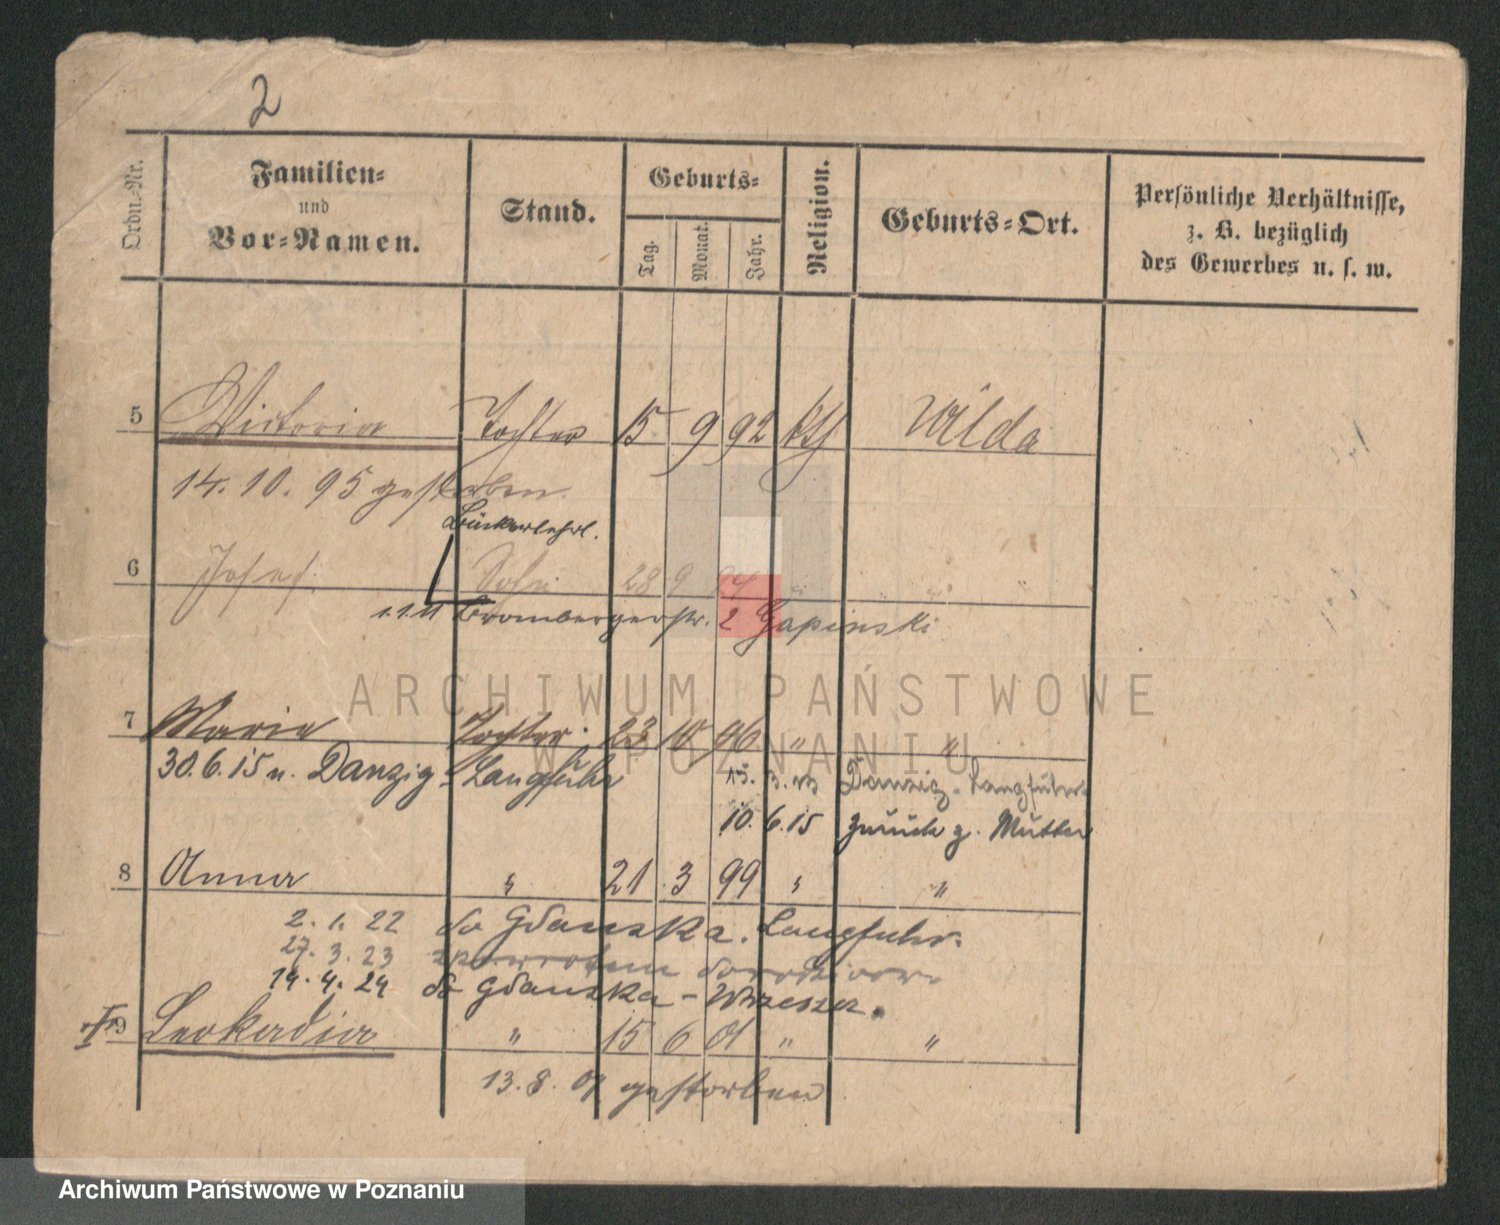 2
Ordn.-Nr.
Familien-
und
Vor-Namen.
Stand.
Geburts-
Tag.
Monat.
Jahr.
Religion.
Geburts-Ort.
Persönliche Verhältnisse,
z. B. bezüglich
des Gewerbes u. s. w.
5 Victoria Tochter 15 9 92 kth Wilda
14. 10. 95 gestorben.
Bäckerlehrl.
6 Josef. Sohn 28 9 94 " "
1.1.11 Brombergerstr. 2 Gapinski
7 Maria Tochter 23 10 96 " "
30.6.15 n. Danzig-Langfuhr
Danzig-Langfuhr
10. 6.15 zurück z. Mutter
8 Anna " 21 3 99 " "
2. 1. 22 do Gdanska. Langfuhr.
27. 3. 23
14. 4. 24 do Gdanska-Wrzeszcz.
9 Leokadia " 15 6 01 " "
13. 8. 01 gestorben
ARCHIWUM PAŃSTWOWE
W POZNANIU
Archiwum Państwowe w Poznaniu